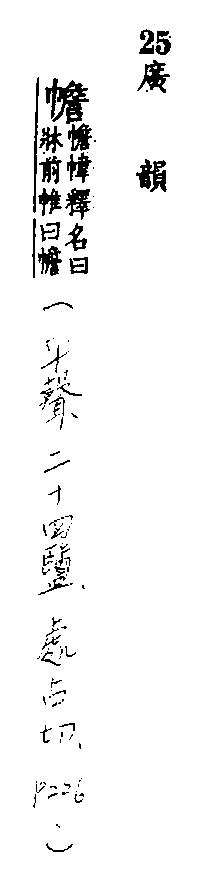 25
廣韻
幨
幨幃釋名曰
牀前帷曰幨
(平聲、二十四鹽、處占切、P226、)